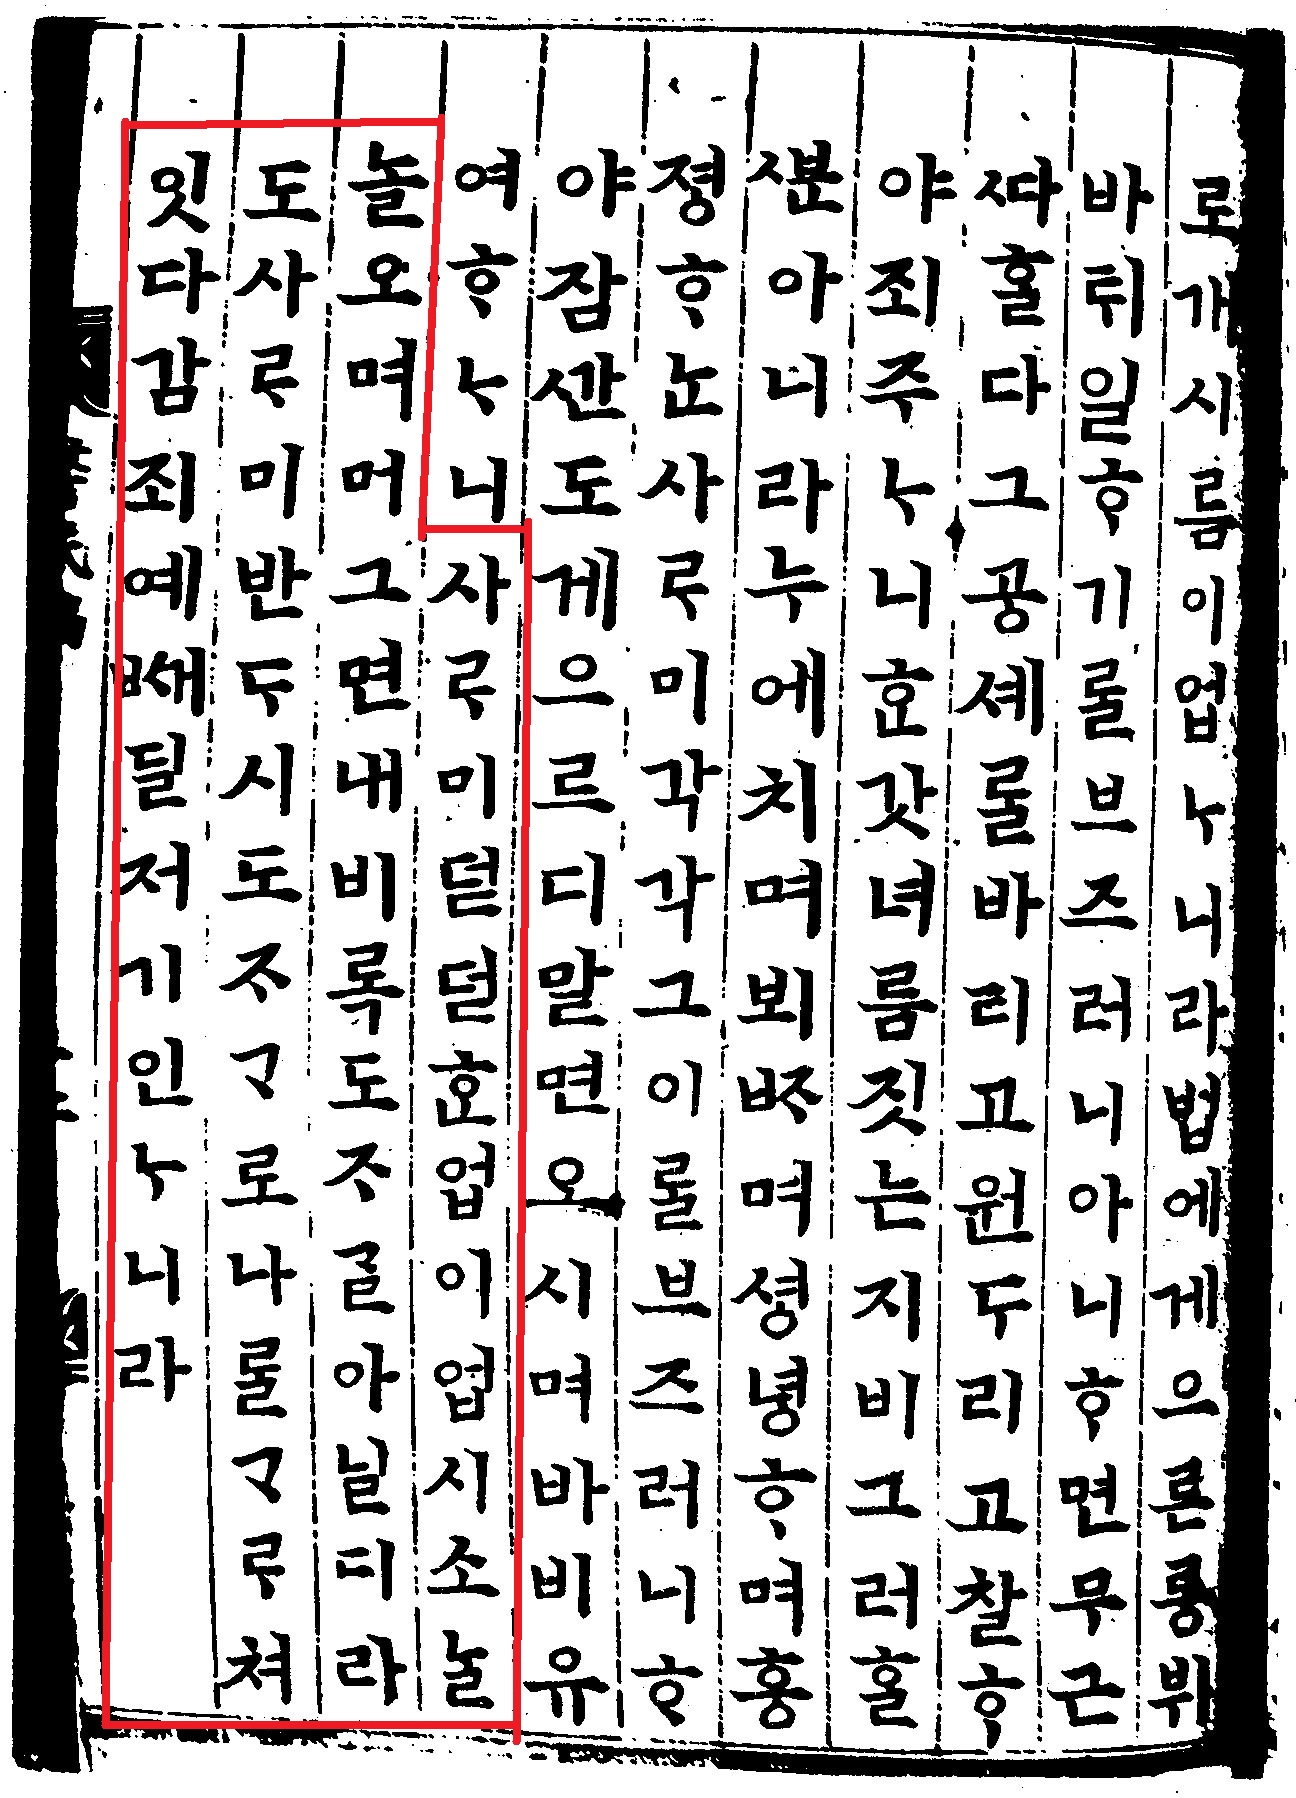 로개시름이업ᄂᆞ니라법에게으른룡뷔
바튀일ᄒᆞ기ᄅᆞᆯ브즈러니아니ᄒᆞ면무근
ᄯᅡ홀다그공셰ᄅᆞᆯ바리고원두리고찰ᄒᆞ
야죄주ᄂᆞ니ᄒᆞᆫ갓녀름짓는지비그러홀
ᄲᅮᆫ아니라누에치며뵈ᄧᆞ며셩녕ᄒᆞ며흥
졍ᄒᆞᄂᆞᆫ사ᄅᆞ미각각그이ᄅᆞᆯ브즈러니ᄒᆞ
야잠ᄭᅡᆫ도게으르디말면오시며바비유
여ᄒᆞᄂᆞ니사ᄅᆞ미덛덛ᄒᆞᆫ업이업시소놀
놀오며머그면내비록도ᄌᆞᄀᆞᆯ아닐디라
도사ᄅᆞ미반ᄃᆞ시도ᄌᆞᄀᆞ로나ᄅᆞᆯᄀᆞᄅᆞ쳐
잇다감죄예ᄲᅢ딜저기인ᄂᆞ니라